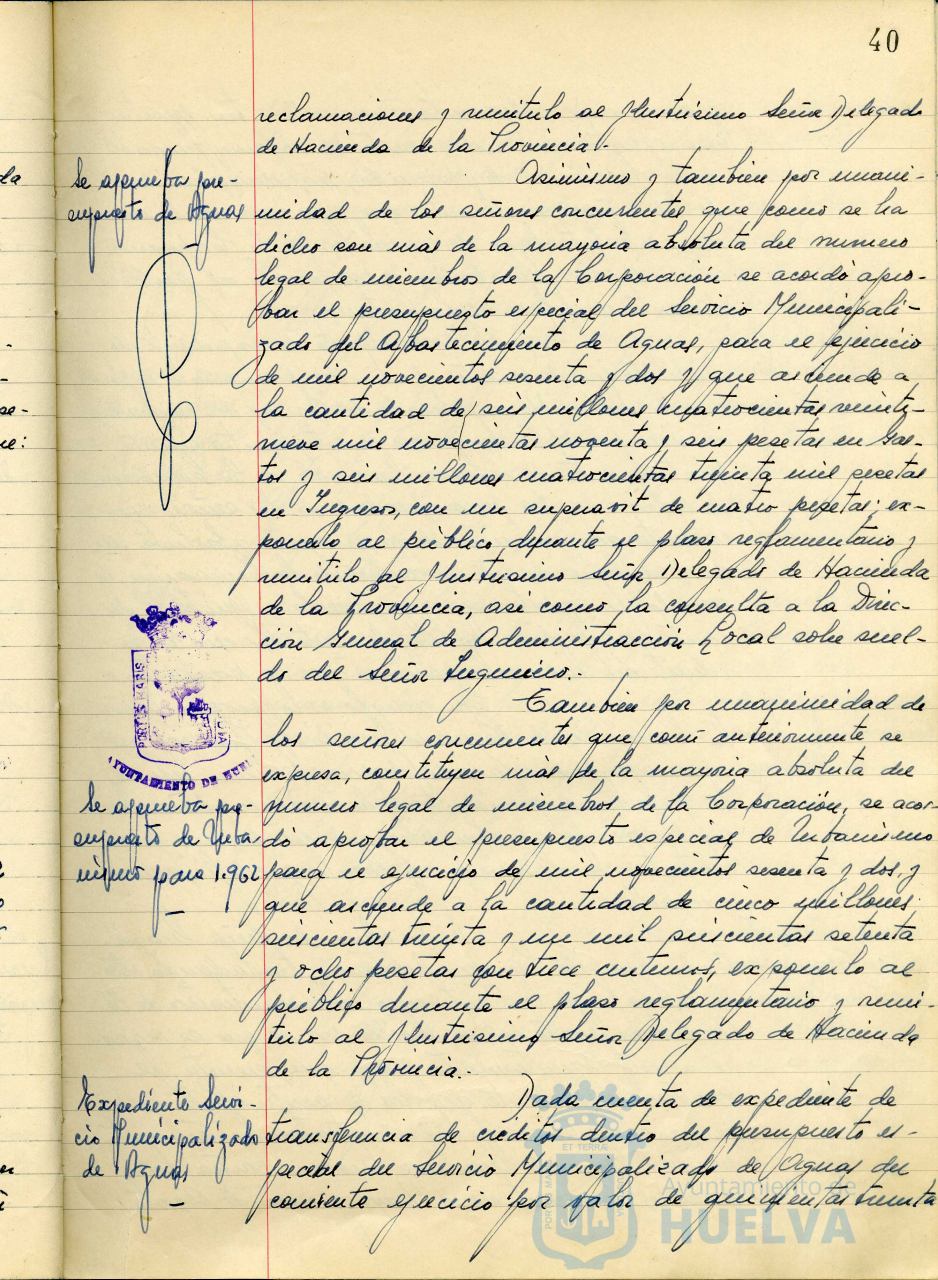 40
reclamaciones y remitirlo al Ilustrísimo Señor Delegado
de Hacienda de la Provincia.-
Se aprueba pre-
supuesto de Aguas
Asimismo y tambien por unani-
midad de los señores concurrentes que como se ha
dicho son más de la mayoria absoluta del numero
legal de miembros de la Corporación se acordó apro-
bar el presupuesto especial del Servicio Municipali-
zado del Abastecimiento de Aguas, para el ejercicio
de mil novecientos sesenta y dos y que asciende a
la cantidad de seis millones cuatrocientas veinti-
nueve mil novecientas noventa y seis pesetas en Gas-
tos y seis millones cuatrocientas treinta mil pesetas
en Ingresos, con un superavit de cuatro pesetas; ex-
ponerlo al público durante el plazo reglamentario y
remitirlo al Ilustrisimo Señor Delegado de Hacienda
de la Provincia, asi como la consulta a la Direc-
cion General de Administracción Local sobre suel-
do del Señor Ingeniero.-
PORTUS MARIS
AYUNTAMIENTO DE HUEL
Tambien por unanimidad de
los señores concurrentes que como anteriormente se
expresa, constituyen más de la mayoria absoluta del
numero legal de miembros de la Corporación, se acor-
dó aprobar el presupuesto especial de Urbanismo
para el ejercicio de mil novecientos sesenta y dos, y
que asciende a la cantidad de cinco millones
seiscientas treinta y un mil seiscientas setenta
y ocho pesetas con trece centimos, exponerlo al
público durante el plazo reglamentario y remi-
tirlo al Ilustrisimo Señor Delegado de Hacienda
de la Provincia.-
Se aprueba pre-
supuesto de Urba-
nismo para 1.962
Expediente Servi-
cio Municipalizado
de Aguas
Dada cuenta de expediente de
transferencia de créditos dentro del presupuesto es-
pecial del Servicio Municipalizado de Aguas del
corriente ejercicio por valor de quinientas treinta
Ayuntamiento de
HUELVA